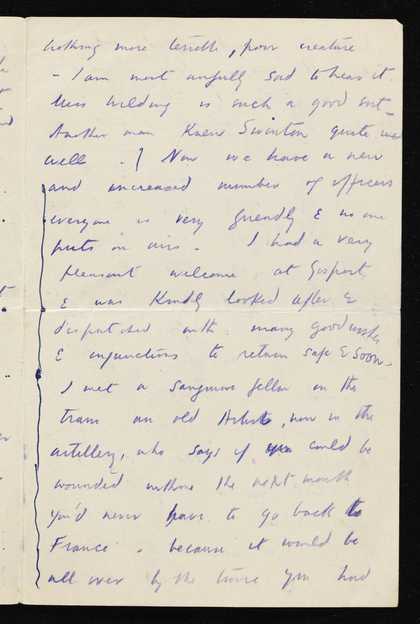 nothing more terrible, poor creature
- I am most awfully sad to hear it.
Miss Wilding is such a good sort -
Another man knew Swinton quite
well. } Now we have a new
and increased number of officers
everyone is very friendly & no one
puts on airs - I had a very
pleasant welcome at Gosport
& was kindly looked after &
dispatched with many good wishes
& injunctions to return safe & soon -
I met a sanguine fellow in the
train an old Artist, now in the
artillery, who says if you could be
wounded within the next month
you'd never have to go back to
France - because it would be
all over by the time you had